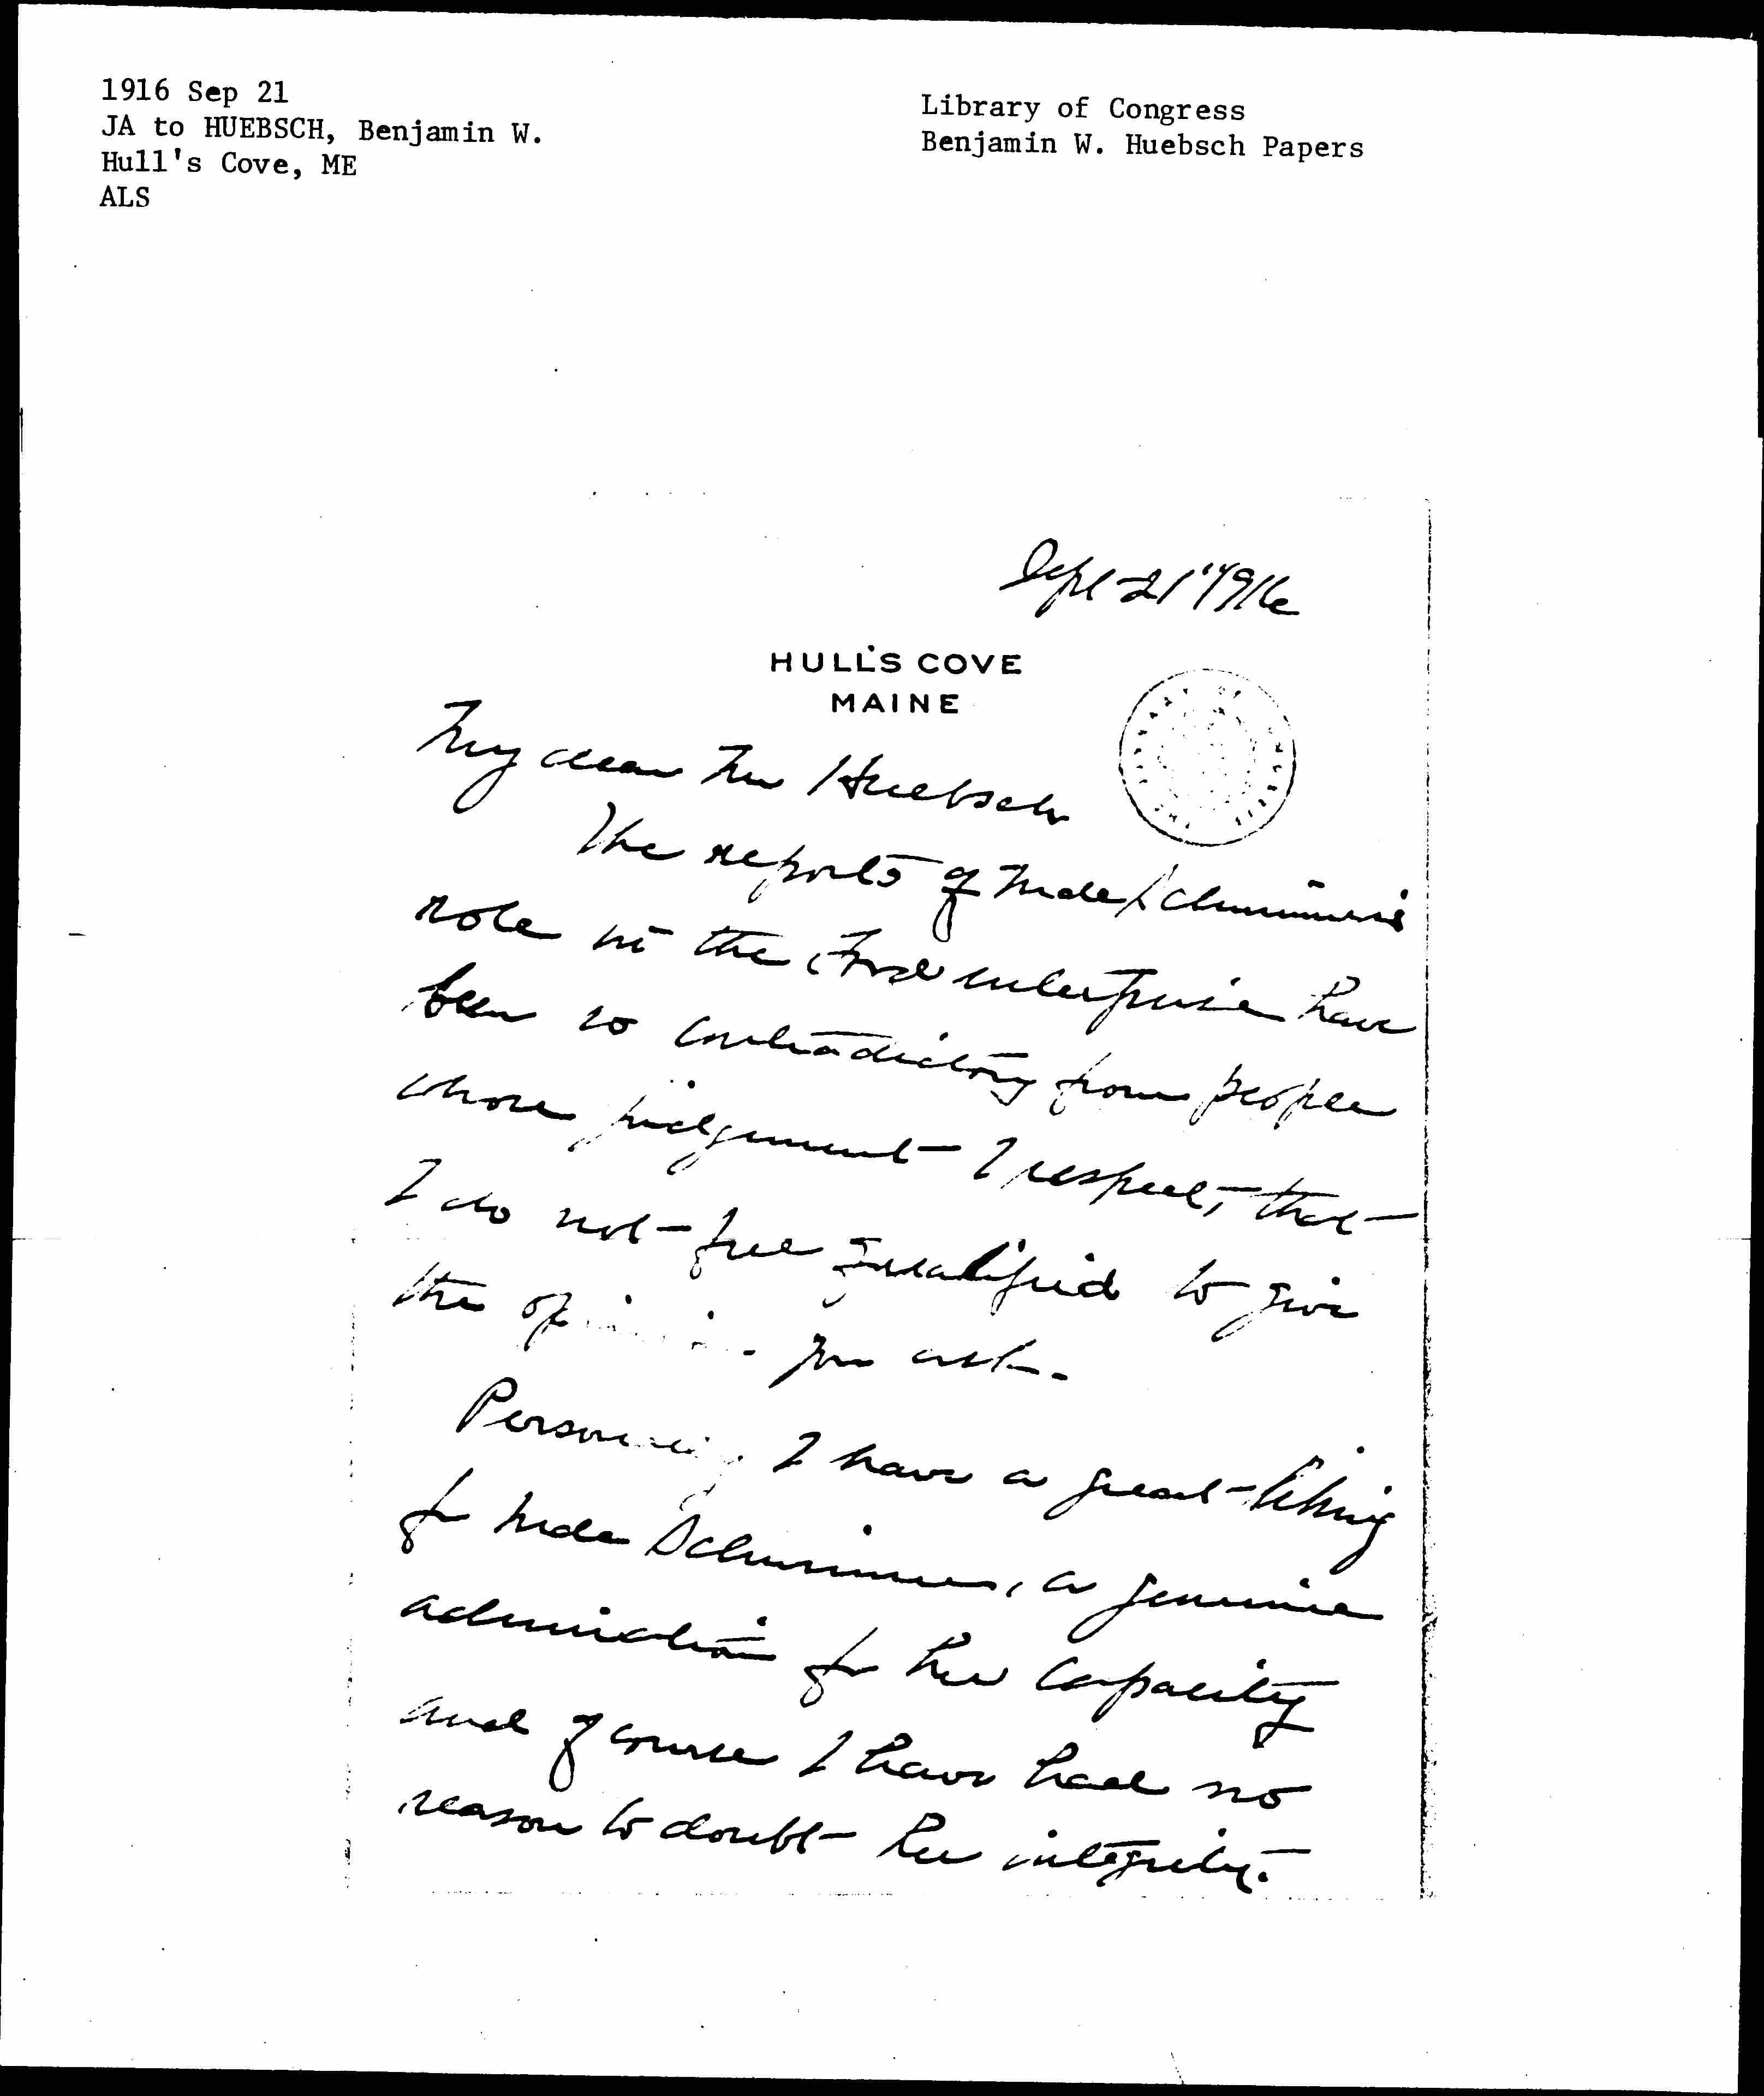 1916 Sep 21
JA to HUEBSCH, Benjamin W.
Hull's Cove, ME
ALS
Library of Congress
Benjamin W. Huebsch Papers
Sept 21" 1916
HULL'S COVE
MAINE
My dear Mr Huebsch
The reports of Mde Schwimmer's
role in the Ford enterprise have
been so contradictory from people
whose judgement I respect, that
I do not feel qualified to give
the you ask.
Personally I have a great liking
for Mde Schwimmer, a genuine
admiration for her capacity
and of course I have had no
reason to doubt her integrity.